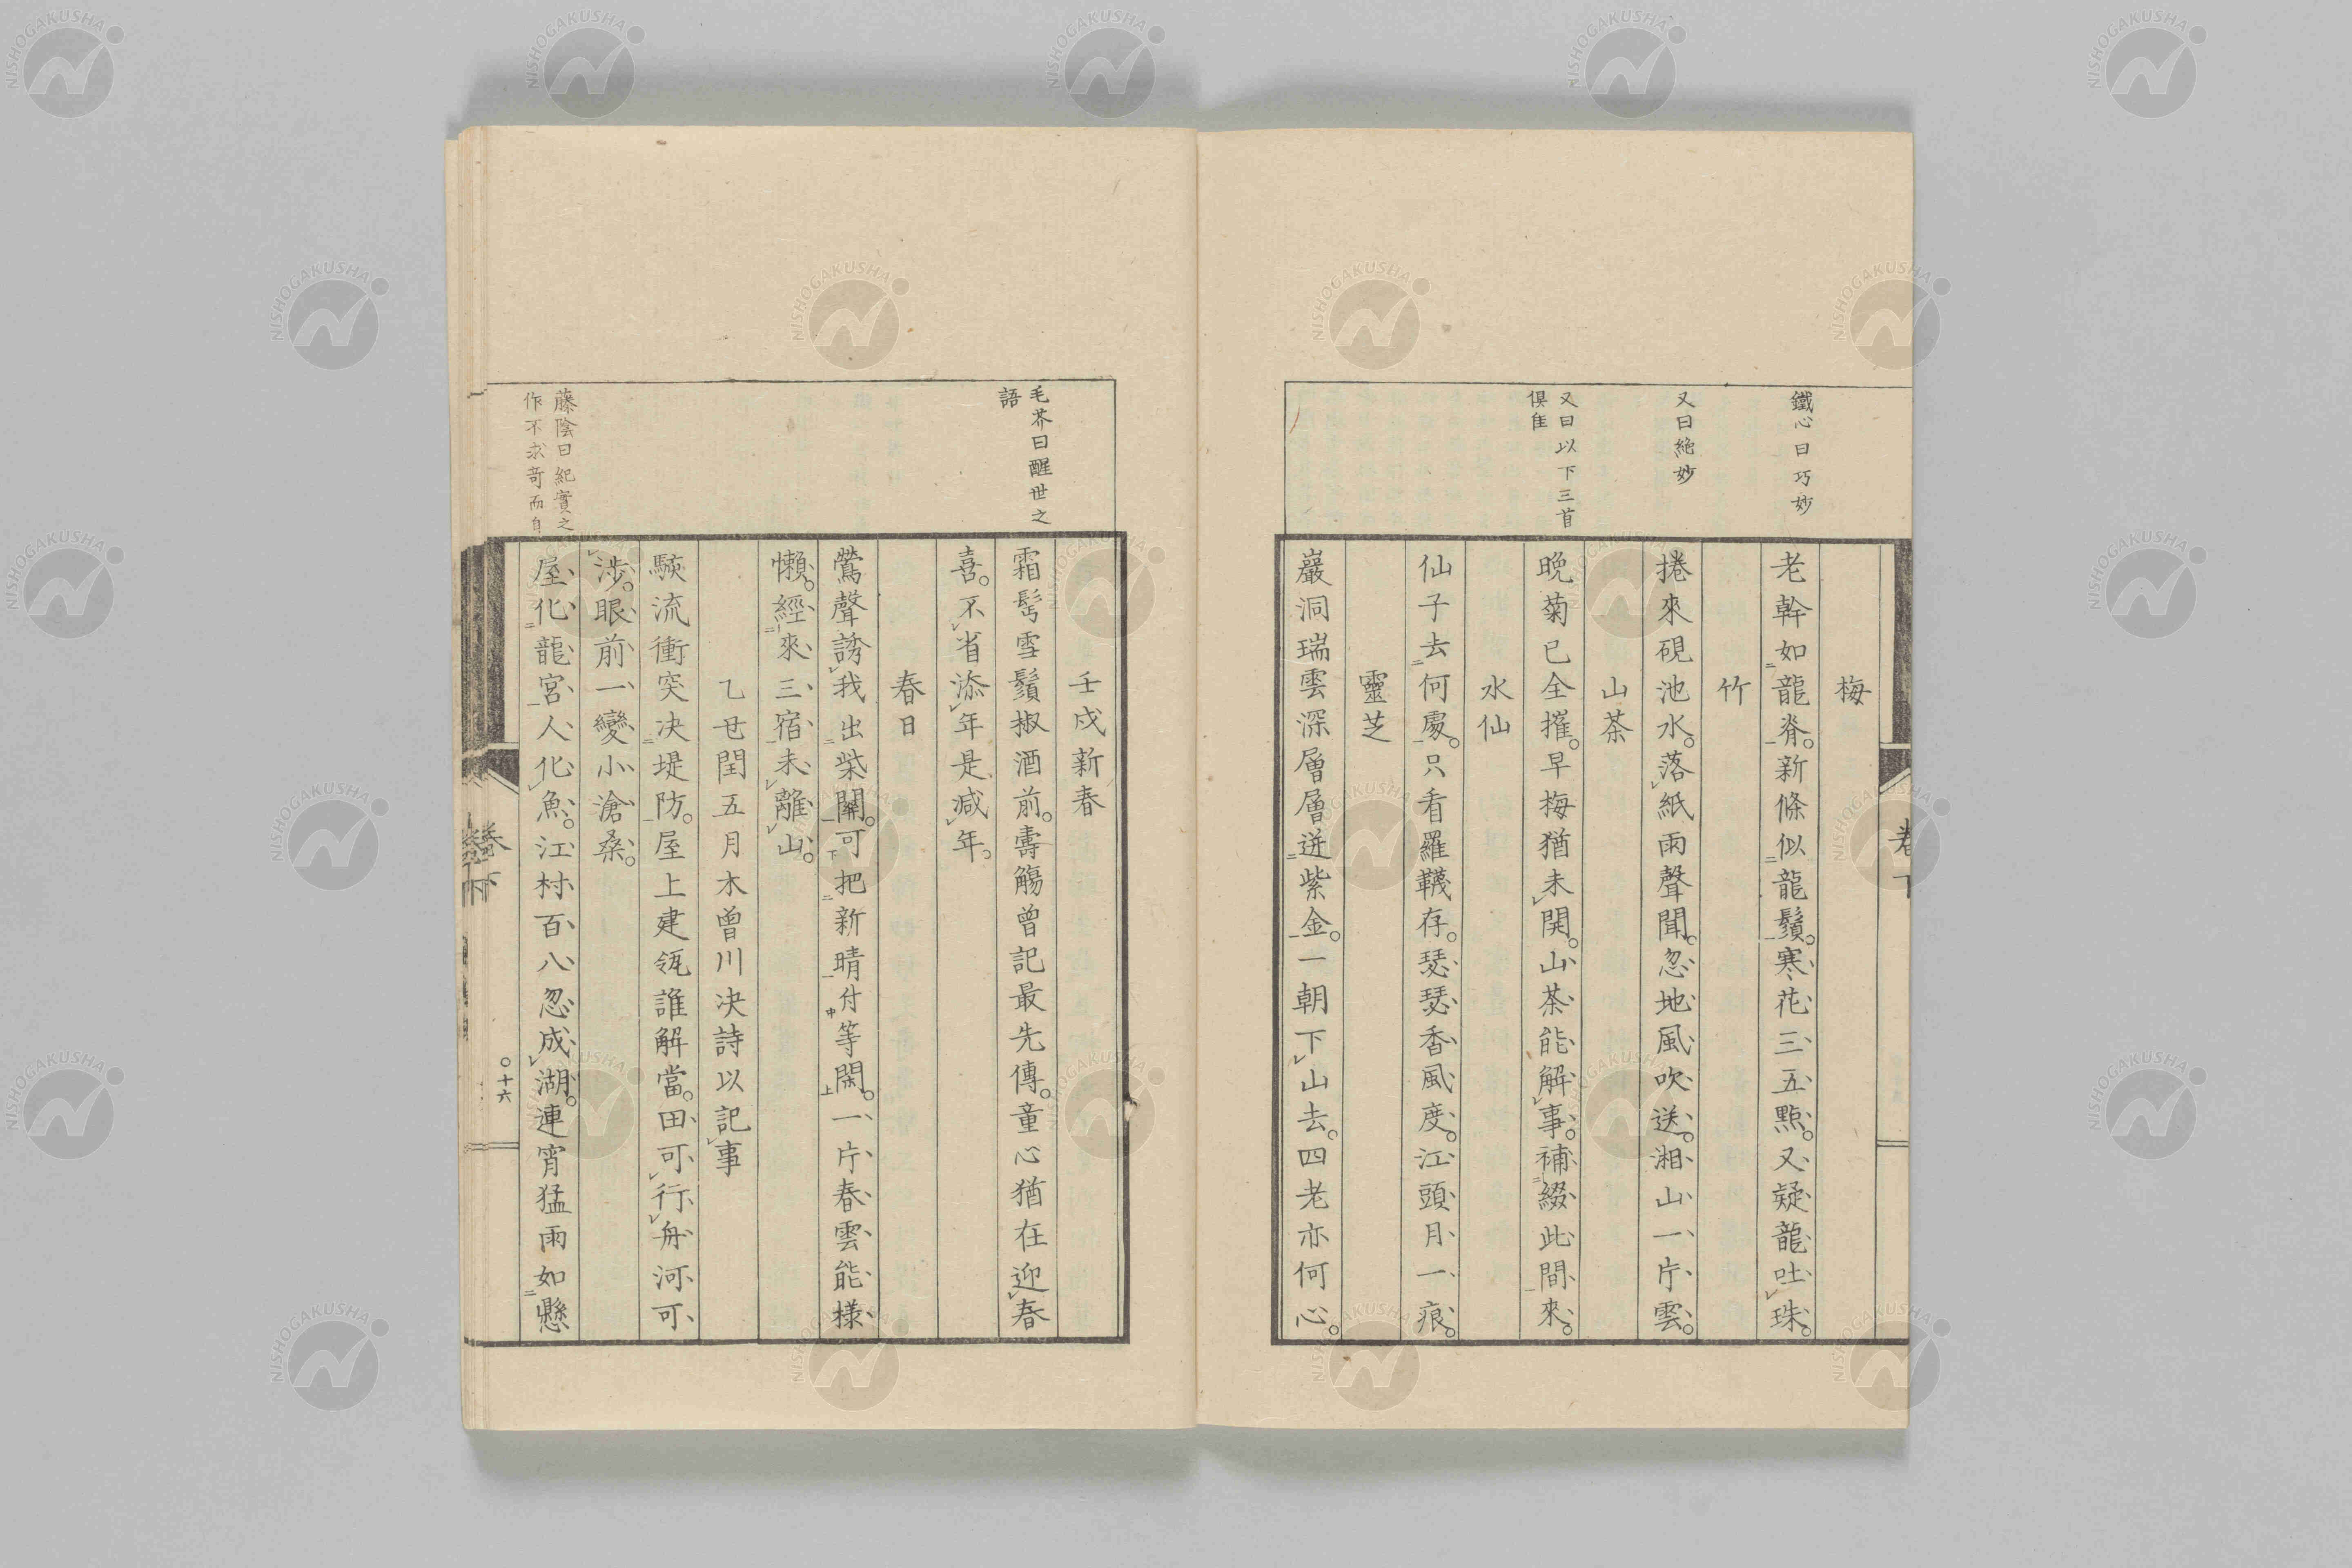 鐵心曰巧妙
又曰絶妙
又曰以下三首
俱隹
梅
老幹如龍脊。新條似龍鬚。寒花三五點。又疑龍吐珠。
竹
捲來硯池水。落紙雨聲聞。忽地風吹送。湘山一片雲。
山茶
晚菊已全摧。早梅猶未開。山茶能解事。補綴此間來。
水仙
仙子去何處。只看羅韈存。瑟瑟香風度。江頭月一痕。
靈芝
巖洞瑞雲深層層迸紫金。一朝下山去。四老亦何心。
毛芥曰醒世之
語
藤陰曰紀實之
作不求奇而自
壬戌新春
霜髩雪鬚椒酒前。壽觴曾記最先傳。童心猶在迎春
喜。不省添年是減年。
春日
鶯聲誘我出柴關。可把新晴付等閑。一片春雲能様
懶。經來三宿未離山。
乙丑閏五月木曾川決詩以記事
駛流衝突決堤防。屋上建瓴誰解當。田可行舟河可
涉。眼前一變小滄桑。
屋化龍宮人化魚。江村百八忽成湖。連宵猛雨如懸
卷下
〇十六
NISHOGAKUSHA